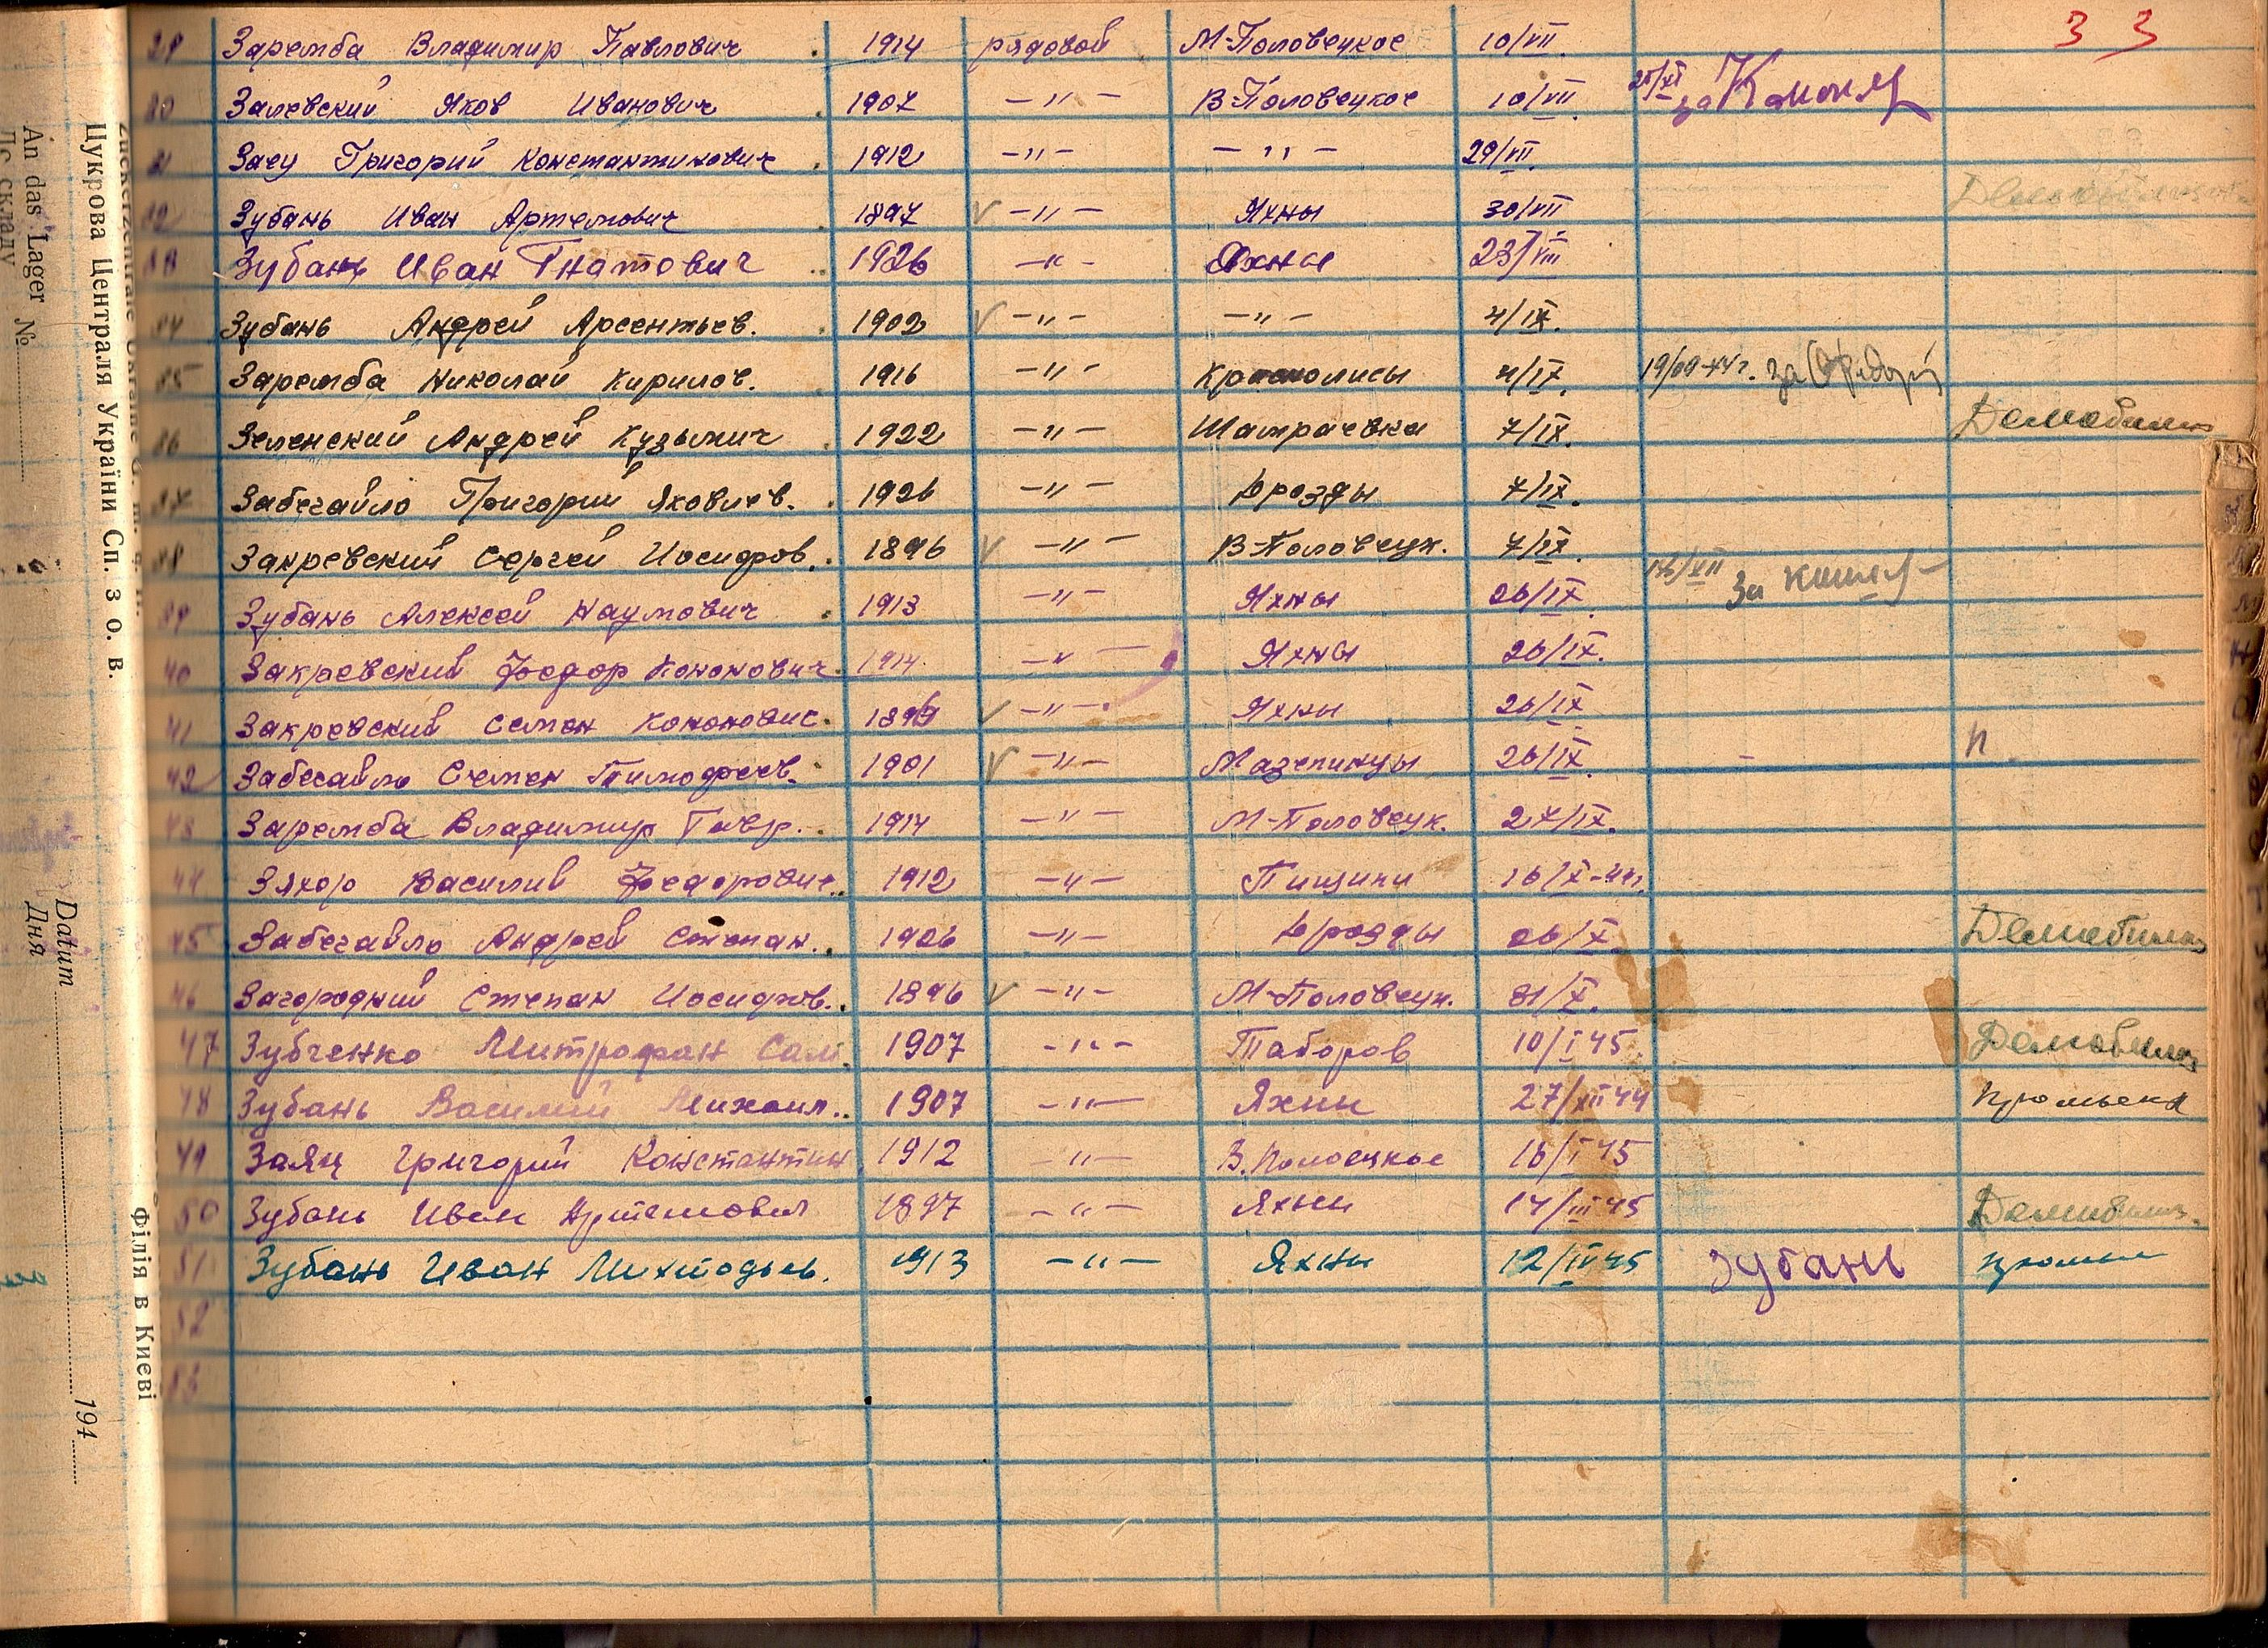 3 3
29 Заремба Владимир Павлович . 1914 рядовой М-Половецкое 10/VII.
30 Залевский Яков Иванович 1907 –"– В-Половецкое 10/VII. 25/XI за
31 Заец Григорий Константинович . 1912 –"– –"– 29/VII.
32 Зубань Иван Артемович 1897 V –"– Яхны 30/VII
33 Зубань Иван Гнатович .. 1926 –"– Яхны 23/VIII
34 Зубань Андрей Арсентьев. . 1902 V –"– –"– 4/IX.
35 Заремба Николай Кирилов. 1916 –"– 4/IX. 19/09-44г. за
36 Зеленский Андрей Кузьмич . 1922 –"– Шамраевка 7/IX. Демобилиз
37 Забегайло Григорий Яковлев. 1926 –"– Дрозды 7/IX.
38 Закревский Сергей Иосифов. . 1896 V –"– В-Половецк. 7/IX.
39 Зубань Алексей Наумович . 1913 –"– Яхны 26/IX. за
40 Закревский Федор Кононович. 1914 –"– Яхны 26/IX.
41 Закревский Семен Кононович. V –"– Яхны 26/IX
42 Забегайло Семен Тимофеев. 1901 V –"– Мазепинцы 26/IX. – п
43 Заремба Владимир Гавр. . 1914 –"– М-Половецк. 27/IX.
44 Зяхор Василий Федорович.. 1912 –"– Пищики 16/X-44г.
45 Забегайло Андрей Степан. . 1926 –"– Дрозды 26/X. Демобилиз
46 Загородний Степан Иосифов. . 1896 V –"– М-Половецк. 31/X.
47 Зубченко Митрофан Сам. 1907 –"– Таборов 10/I 45. Демобилиз
48 Зубань Василий Михаил.. 1907 –"– Яхни 27/XII 44
49 Заяц Григорий Константин 1912 –"– 16/I 45
50 Зубань Иван Артемович 1897 –"– Яхни 14/III 45 Демобилиз.
51 Зубань Иван 1913 –"– Яхны 12/IV 45 Зубань
52
53
Цукрова Централя України Сп. з о. в.
Філія в Києві
An das Lager №
До складу
Datum
Дня
194